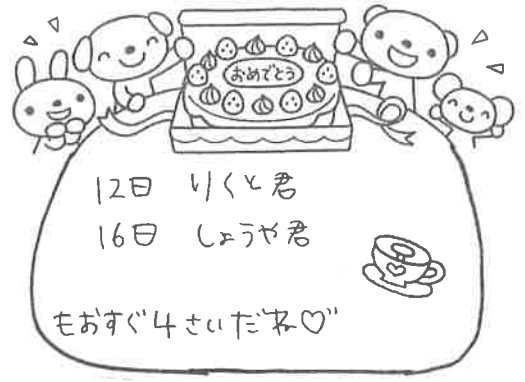 おめでとう
12日 りくと君
16日 しょうや君
もおすぐ4さいだね♡